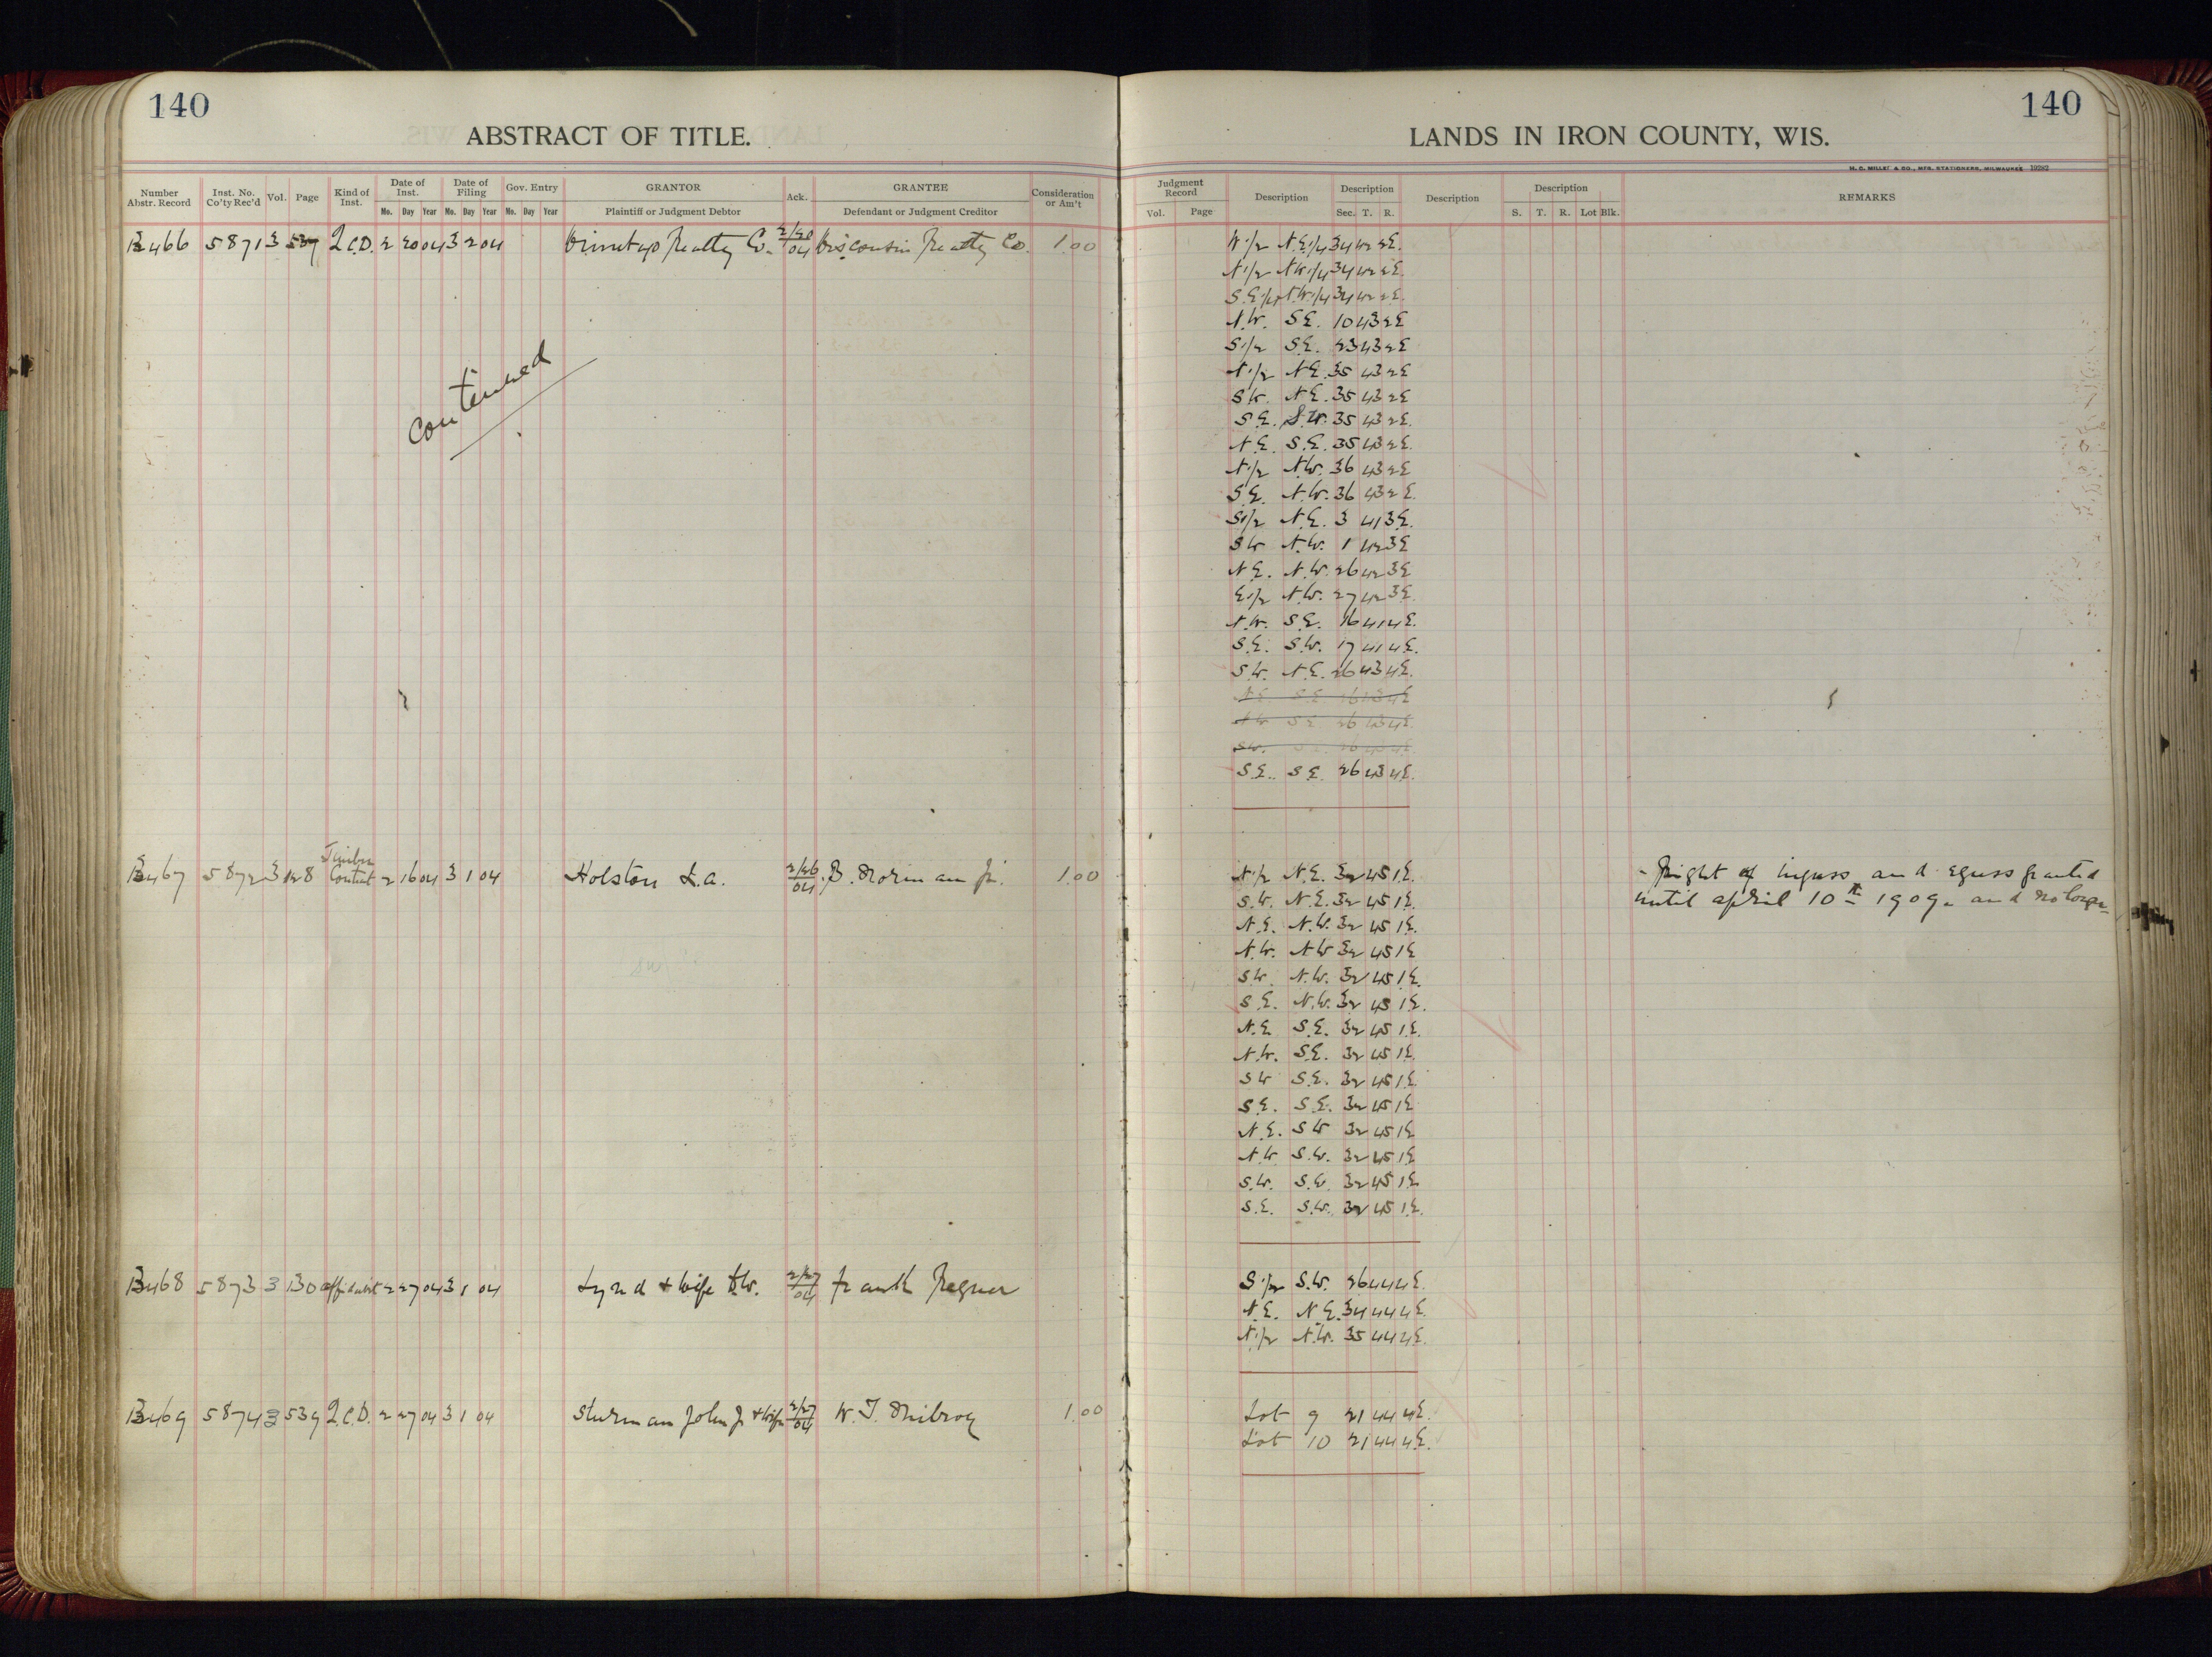 140
ABSTRACT OF TITLE.
Number Abstr. Record
Inst. No. Co'ty Rec'd
Vol.
Page
Kind of Inst.
Date of Inst.
Mo. Day Year
Date of Filing
Mo. Day Year
Gov. Entry
Mo. Day Year
GRANTOR
Plaintiff or Judgment Debtor
Ack.
GRANTEE
Defendant or Judgment Creditor
Consideration or Am't
B466 5871 3 539 Q.C.D. 2 20 04 3 2 04 Realty Co. 2/20 04 Wisconsin Realty Co. 1.00
Continued
B467 5872 3 128 Timber Contract 2 16 04 3 1 04 Holston L.A. 2/26 04 B. Norman Jr. 1.00
B468 5873 3 130 affidavit 2 27 04 3 1 04 Lynd & Wife D.W. 2/27 04 Frank
B469 5874 3 539 Q.C.D. 2 27 04 3 1 04 Sturman John J & Wife 2/27 04 W. T. 1.00
140
LANDS IN IRON COUNTY, WIS.
H. C. MILLER & CO., MFG. STATIONERS, MILWAUKEE 19282
Judgment Record
Vol. Page
Description
Description
Sec. T. R.
Description
Description
S. T. R. Lot Blk.
REMARKS
W.1/2 N.E.1/4 34 42 2E.
N1/2 N.W.1/4 34 42 2E.
S.E.1/4 N.W.1/4 34 42 2E.
N.W. S.E. 10 43 2E
S1/2 S.E. 23 43 2E
N1/2 N.E. 35 43 2E
S.W. N.E. 35 43 2E
S.E. S.W. 35 43 2E.
N.E. S.E. 35 43 2E.
N1/2 N.W. 36 43 2E
S.E. N.W. 36 43 2E.
S1/2 N.E. 3 41 3E.
S.W. N.W. 1 42 3E
N.E. N.W. 26 42 3E
E1/2 N.W. 27 42 3E.
N.W. S.E. 16 41 4E.
S.E. S.W. 17 41 4E.
S.W. N.E. 26 43 4E.
N.E. S.E. 26 43 4E
N.W. S.E. 26 43 4E.
S.W. S.E. 26 43 4E.
S.E. S.E. 26 43 4E.
N1/2 N.E. 32 45 1E.
S.W. N.E. 32 45 1E.
N.E. N.W. 32 45 1E.
N.W. N.W. 32 45 1E
S.W. N.W. 32 45 1E.
S.E. N.W. 32 45 1E.
N.E. S.E. 32 45 1E.
N.W. S.E. 32 45 1E.
S.W. S.E. 32 45 1E.
S.E. S.E. 32 45 1E
N.E. S.W. 32 45 1E
N.W. S.W. 32 45 1E
S.W. S.W. 32 45 1E.
S.E. S.W. 32 45 1E.
Right of ingress and egress granted
until april 10th 1909. and no longer
S1/2 S.W. 26 44 4E.
N.E. N.E. 34 44 4E.
N1/2 N.W. 35 44 4E.
Lot 9 21 44 4E.
Lot 10 21 44 4E.